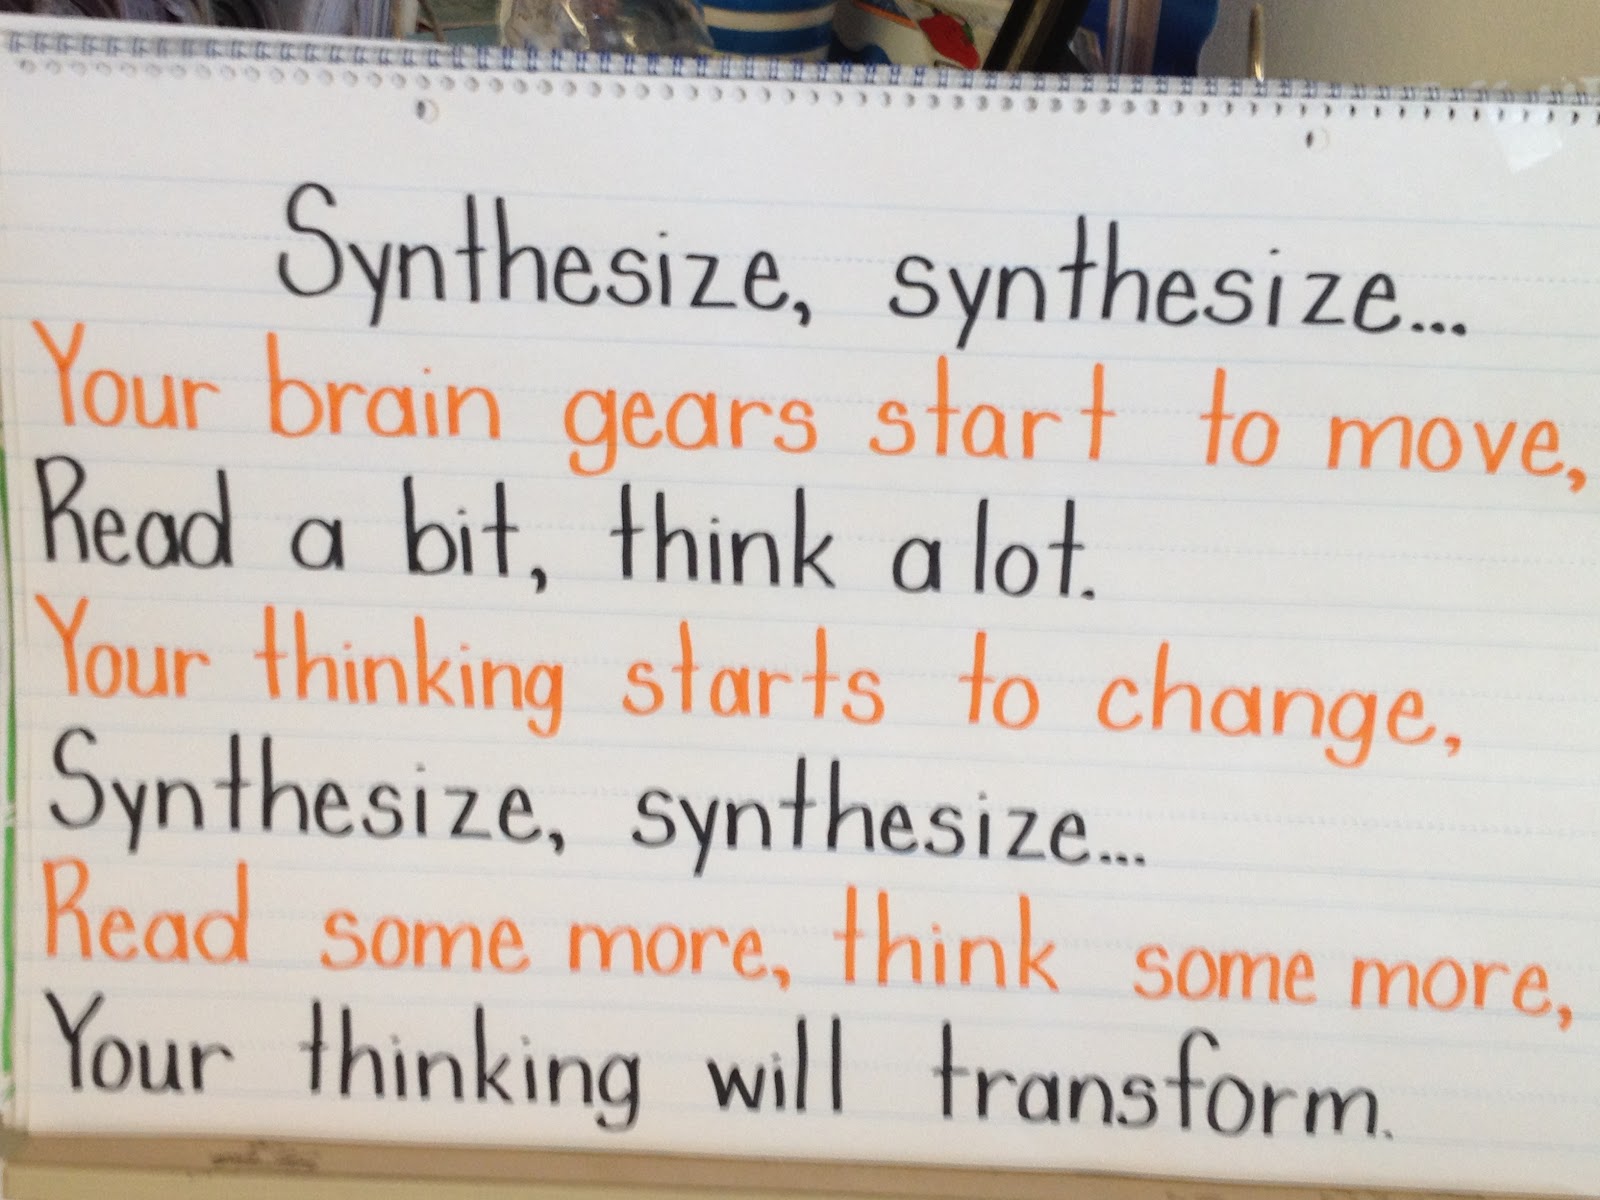 Synthesize, synthesize...
Your brain gears start to move,
Read a bit, think a lot.
Your thinking starts to change,
Synthesize, synthesize...
Read some more, think some more,
Your thinking will transform.